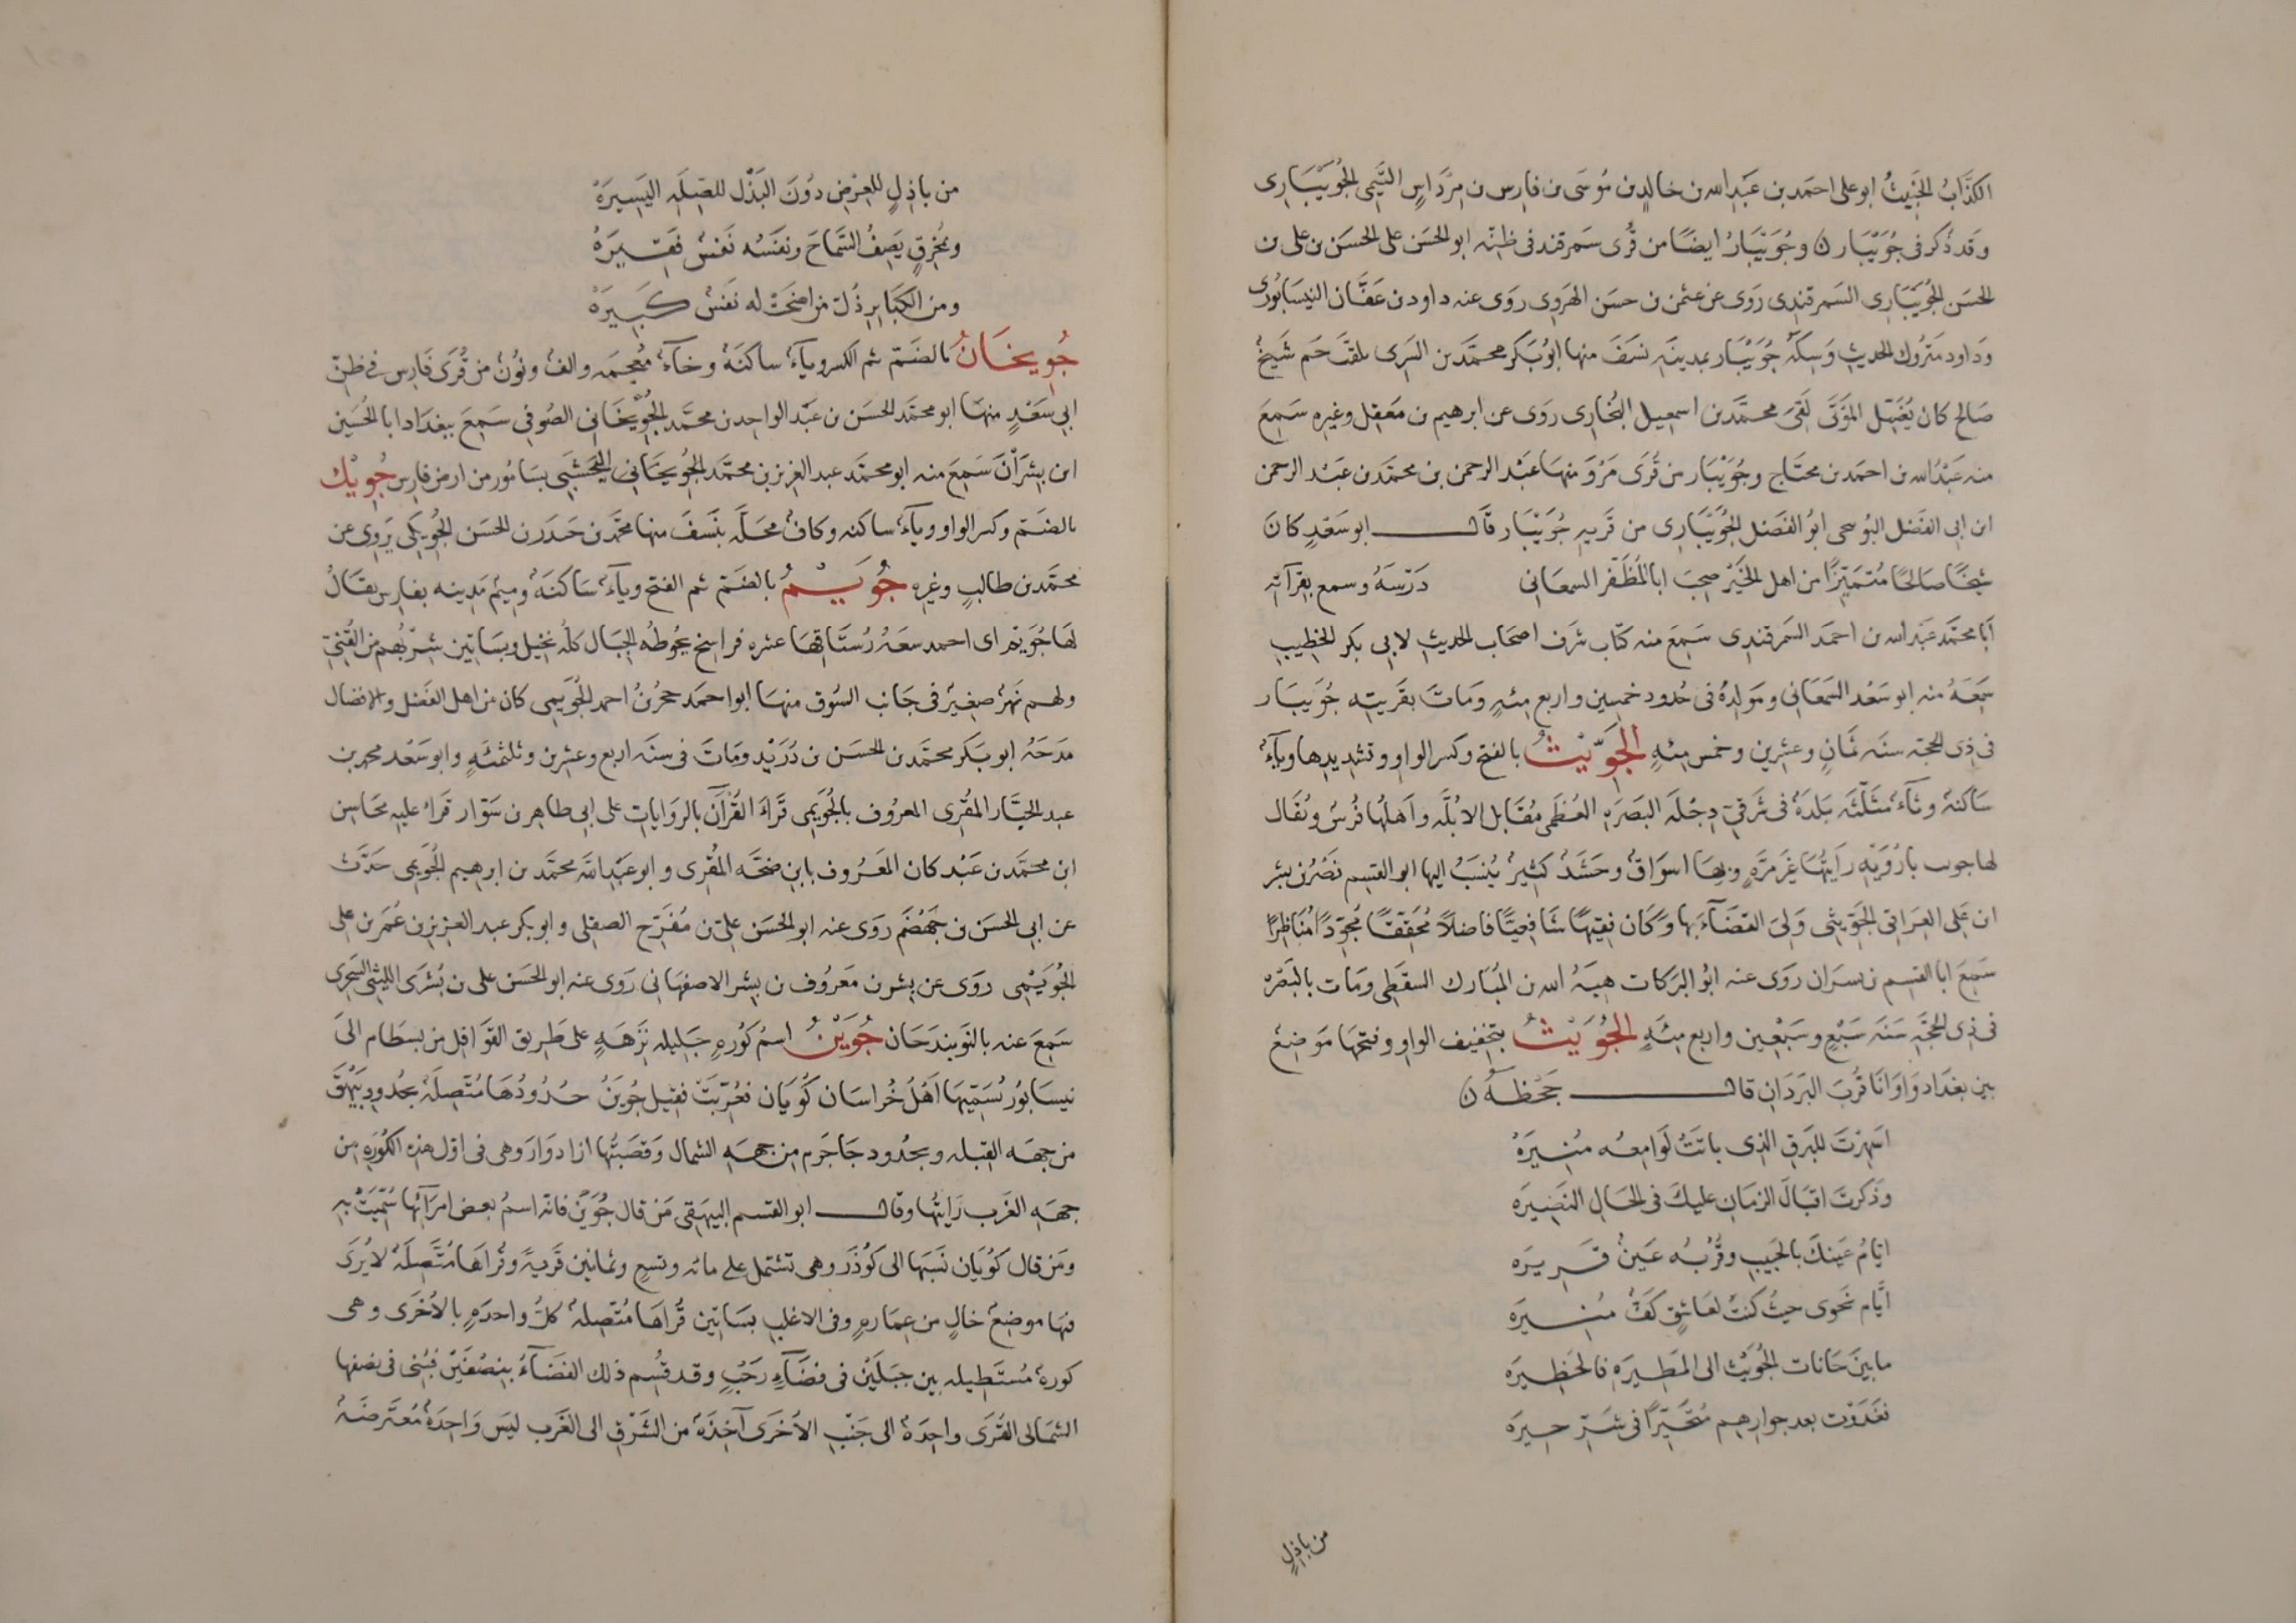 الكذَّابُ الخَبِيثُ ابو على احمَد بن عَبْد الله بن خالد بن مُوسَى بن فارِس بن مِرْدَاسٍ التَّيمى الجُوَيْبَارِى
وقد ذُكر فى جُوَيْبَار ن وجُوَيْبَارُ ايضًا من قُرى سَمرقند فى ظنّه ابو الحسَن على الحسَن بن على بن
الحسَن الجُوَيْبَارِى السَمرقَندى رَوَى عن عثمن بن حسَن الهَروِى روَى عنه داود بن عَفَّان النيسَابُورى
وَداود مَترُوك الحديثِ وَسِكّة جُوَيْبَار بمدينَه نسَفَ منها ابُو بَكر محمَّد بن السَرى يلقَّبُ جَم شَيخٌ
صَالح كان يُغَسِّل المَوْتَى لَقىَ محمَّد بن اسمعيل البُخَارِى روَى عن ابرهيم بن مَعقِل وغيرِه سَمِعَ
منه عَبْدُ الله بن احمَد بن محتَاج وجُوَيْبَار من قُرَى مَرْوَ منها عَبْد الرحمن بن محمَّد بن عَبْد الرحمن
ابن ابى الفَضل البُوسحى ابُو الفَضل الجُوَيْبَارى من قَريه جُوَيْبَار قَال ابو سَعْدٍ كانَ
شيخًا صَالحًا مُتَميّزًا من اهل الخَيْر صحِبَ ابا المُظَفّر السمعَانى دَرْسَهُ وسمع بقرآته
أبا محمَّد عَبد الله بن احمَد السَمرقندى سَمِعَ منه كتاب شَرَف اصحَاب الحديثِ لابى بكر الخطيب
سَمِعَهُ منه ابو سَعْد السَمعَانى ومَولدُهُ فى حُدود خمسِين واربع مِئهٍ وَمَاتَ بقَريته جُوَيبَار
فى ذِى الحجّه سنَه ثَمانٍ وعِشرِين وخمس مِئهٍ الجَوِّيْثُ بالفتح وكسر الواو وتشديدها وياءٌ
سَاكنةٌ وثآءٌ مثَلّثَه بَلدَةٌ فى شَرقىّ دِجْلَه البَصرَه العُظمَى مُقَابل الابُلَّه وأهلُها فُرْسٌ ويُقَال
لها جوب بارُوَيْه رَأيتُهَا غَيرَ مَرَّهٍ وبها اسوَاقٌ وحَشَدٌ كَثيرٌ يُنسَبُ اليها ابو القسم نَصْرُ بن بشر
ابن عَلى العِرَاقى الجَوِّيثى وَلِىَ القَضَآءَ بها وَكَان فقيهًا شَافعيًّا فاضلًا مُحَقِقًا مُجوِّدًا مُنَاظِرًا
سَمِعَ ابا القسم بن بسران روَى عنه ابُو البَركات هِبَهُ الله بن المُبَارك السقَطى ومَات بالبَصْره
فى ذِى الحجّه سَنَه سَبْعٍ وسَبْعِين واربع مِئهٍ الجُوَيْثُ بتخفيف الواو وفتحها مَوضِعٌ
بين بغدَاد وَاوَانا قُربَ البَرَدَانِ قال جَحْظَهُ ن
اسَهِرْتَ للبَرقِ الذى باتَتْ لَوامِعُه مُنيرَهْ
وذَكرتَ اقبَالَ الزمَانِ عليكَ فى الحَالِ النَضِيرَه
ايّامُ عَينكَ بالحَبِيبِ وقُرْبُه عَينٌ قَرِيرَه
ايّام نَحوى حيثُ كنتُ لعَاشِقٍ كَفٌّ مُنيرَه
ما بينَ حَانات الجُوَيْث الى المَطِيرَهِ فالحَظِيرَه
فغَدَوْت بعد جوارِهِم مُتحَيّرًا فى شَرِّ حِيرَه
من باذِلٍ
من باذِلٍ للعِرْضِ دُونَ البَذْل للصِّلَه اليَسِيرَهْ
ومُخْرِقٍ يَصِفُ السَّمَاحَ ونَفسُه نَفسٌ فَقِيرَهْ
ومن الكَبَايرِ ذُل من اضحَتْ له نَفسٌ كَبِيرَهْ
جُوِيخَانُ بالضَمّ ثم الكسر وياءٌ ساكنَةٌ وخآءٌ مُعجمَه والفٌ ونُونٌ من قُرَى فَارِس فى ظنّ
ابى سَعْدٍ منهَا ابو محمَّد الحسَن بن عَبْد الواحِد بن محمَّد الجُوِيْخَانى الصُوفى سَمِعَ ببغدَاد ابا الحُسَين
ابن بِشْرَانَ سَمِعَ منه ابو محمَّد عبد العَزيز بن محمَّد الجُوِيخَانى النَخْشَبى بسَابُور من ارض فارِس جُوِيْك
بالضَمّ وكسر الواو وياءٌ ساكنه وكافٌ محَلَّه بنَسَفَ منها محمَّد بن حَيدَر بن الحسَن الجُوِيكى يَروِى عن
محمَّد بن طالبٍ وغيره جُوَيْمُ بالضَمّ ثم الفتح وياءٌ سَاكنَةٌ ومِيمٌ مَدِينه بفارِس يقَالُ
لهَا جُوَيْم ابى احمد سعَهُ رُستَاقهَا عشره فراسخ يحُوطُه الجِبَال كلُّه نخيل وبسَاتِين شِرْبُهم من القُنىّ
ولهم نَهْرٌ صغيرٌ فى جَانب السُوق منهَا ابو احمَد حجرُ بنُ احمد الجُوَيْمِى كان من اهل الفَضل والافضال
مَدحَهُ ابو بَكر محمَّد بن الحسَن بن دُرَيْدٍ ومَاتَ فى سنَه اربع وعشرين وثلثمئهٍ وابو سَعْد محمد بن
عبد الجبَّار المقرِى المعرُوف بالجُوَيْمى قَرَأَ القُرْآنَ بالرَوَايات على ابى طاهِر بن سَوّار قرَأ عليه محَاسِن
ابن محمَّد بن عَبْد كان المَعرُوف بابن ضحَّه المُقرِى وابو عَبْد الله محمَّد بن ابرهيم الجُوَيْمى حَدَّثَ
عن ابى الحسَن بن جَهْضَمٍ روَى عنه ابو الحسَن علىّ بن مُفَرّح الصقلى وابو بكر عبد العزيز بن عُمَر بن على
الجُوَيْمِى روَى عن بِشر بن مَعرُوف بن بِشر الاصفهَانى رَوَى عنه ابو الحسَن على بن بُشْرَى الليثى السجزى
سَمِعَ عنه بالنَوبندَجَان جُوَيْنُ اسمُ كُورَهٍ جَليله نَزِهَهٍ على طَرِيق القوَافِل من بسطَام الى
نيسَابُور تُسَمّيهَا أهْلُ خُراسَان كُويَان فعُرّبَتْ فقيل جُوَيْنُ حُدُودُهَا مُتَّصِلَهٌ بحُدُودِ بَيْهَقَ
من جهَه القِبله وبحُدُود جَاجَرم من جهَه الشمال وقَصَبَتُها ازاذوَارَ وهى فى اوّل هذه الكُورَه من
جهَه الغَرب رَأيتُها وقال ابو القسم البيهَقى مَن قال جُوَيْن فانّه اسمُ بعض امرَآئها سُمّيَتْ به
ومَن قال كُويَان نَسَبَها الى كُوذَر وهى تشتمل على مائه وتسعٍ وثمانين قَريهً وقُراهَا مُتَّصِلَهٌ لا يُرَى
فيها موضِعٌ خالٍ من عِمَارهٍ وفى الاغلبِ بسَاتِين قُراهَا مُتَّصِلهٌ كلُّ واحدَهٍ بالاُخرَى وهى
كورهٌ مُستَطِيله بين جَبَلَيْن فى فضَآءٍ رَحْبٍ وقد قُسِم ذلك الفضَآءُ بنِصْفَيْنِ فبُنى فى نصفها
الشمَالى القُرَى واحِدَهٌ الى جَنْبِ الاُخرَى آخذَهٌ من الشَرْقِ الى الغَرب ليسَ وَاحِدَهٌ مُعتَرضَهٌ